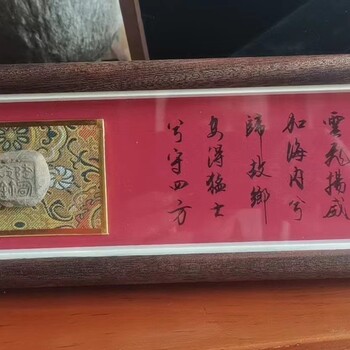 雲飛揚威
加海内兮
歸故鄉
安得猛士
兮守四方